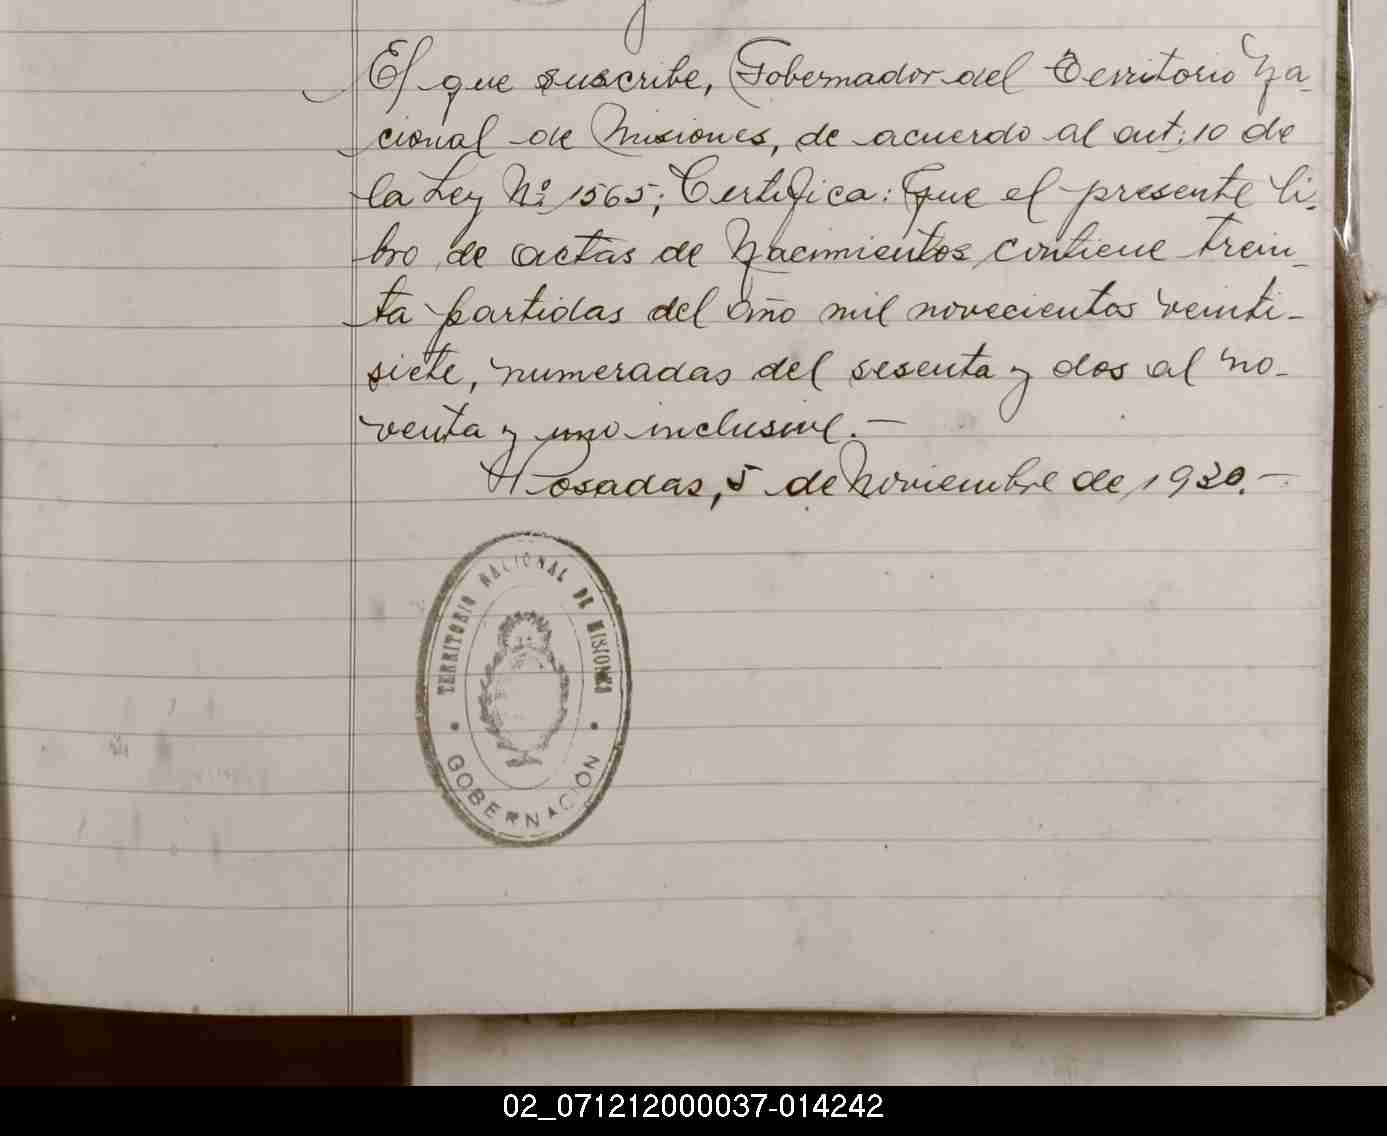 El que suscribe, Gobernador del Territorio Na-
cional de Misiones, de acuerdo al art: 10 de
la Ley Nº 1565; Certifica: Que el presente li-
bro de actas de Nacimientos contiene trein-
ta partidas del año mil novecientos veinti-
siete, numeradas del sesenta y dos al no-
venta y uno inclusive.—
Posadas, 5 de Noviembre de 1930.—
TERRITORIO NACIONAL DE MISIONES
GOBERNACIÓN
02_071212000037-014242